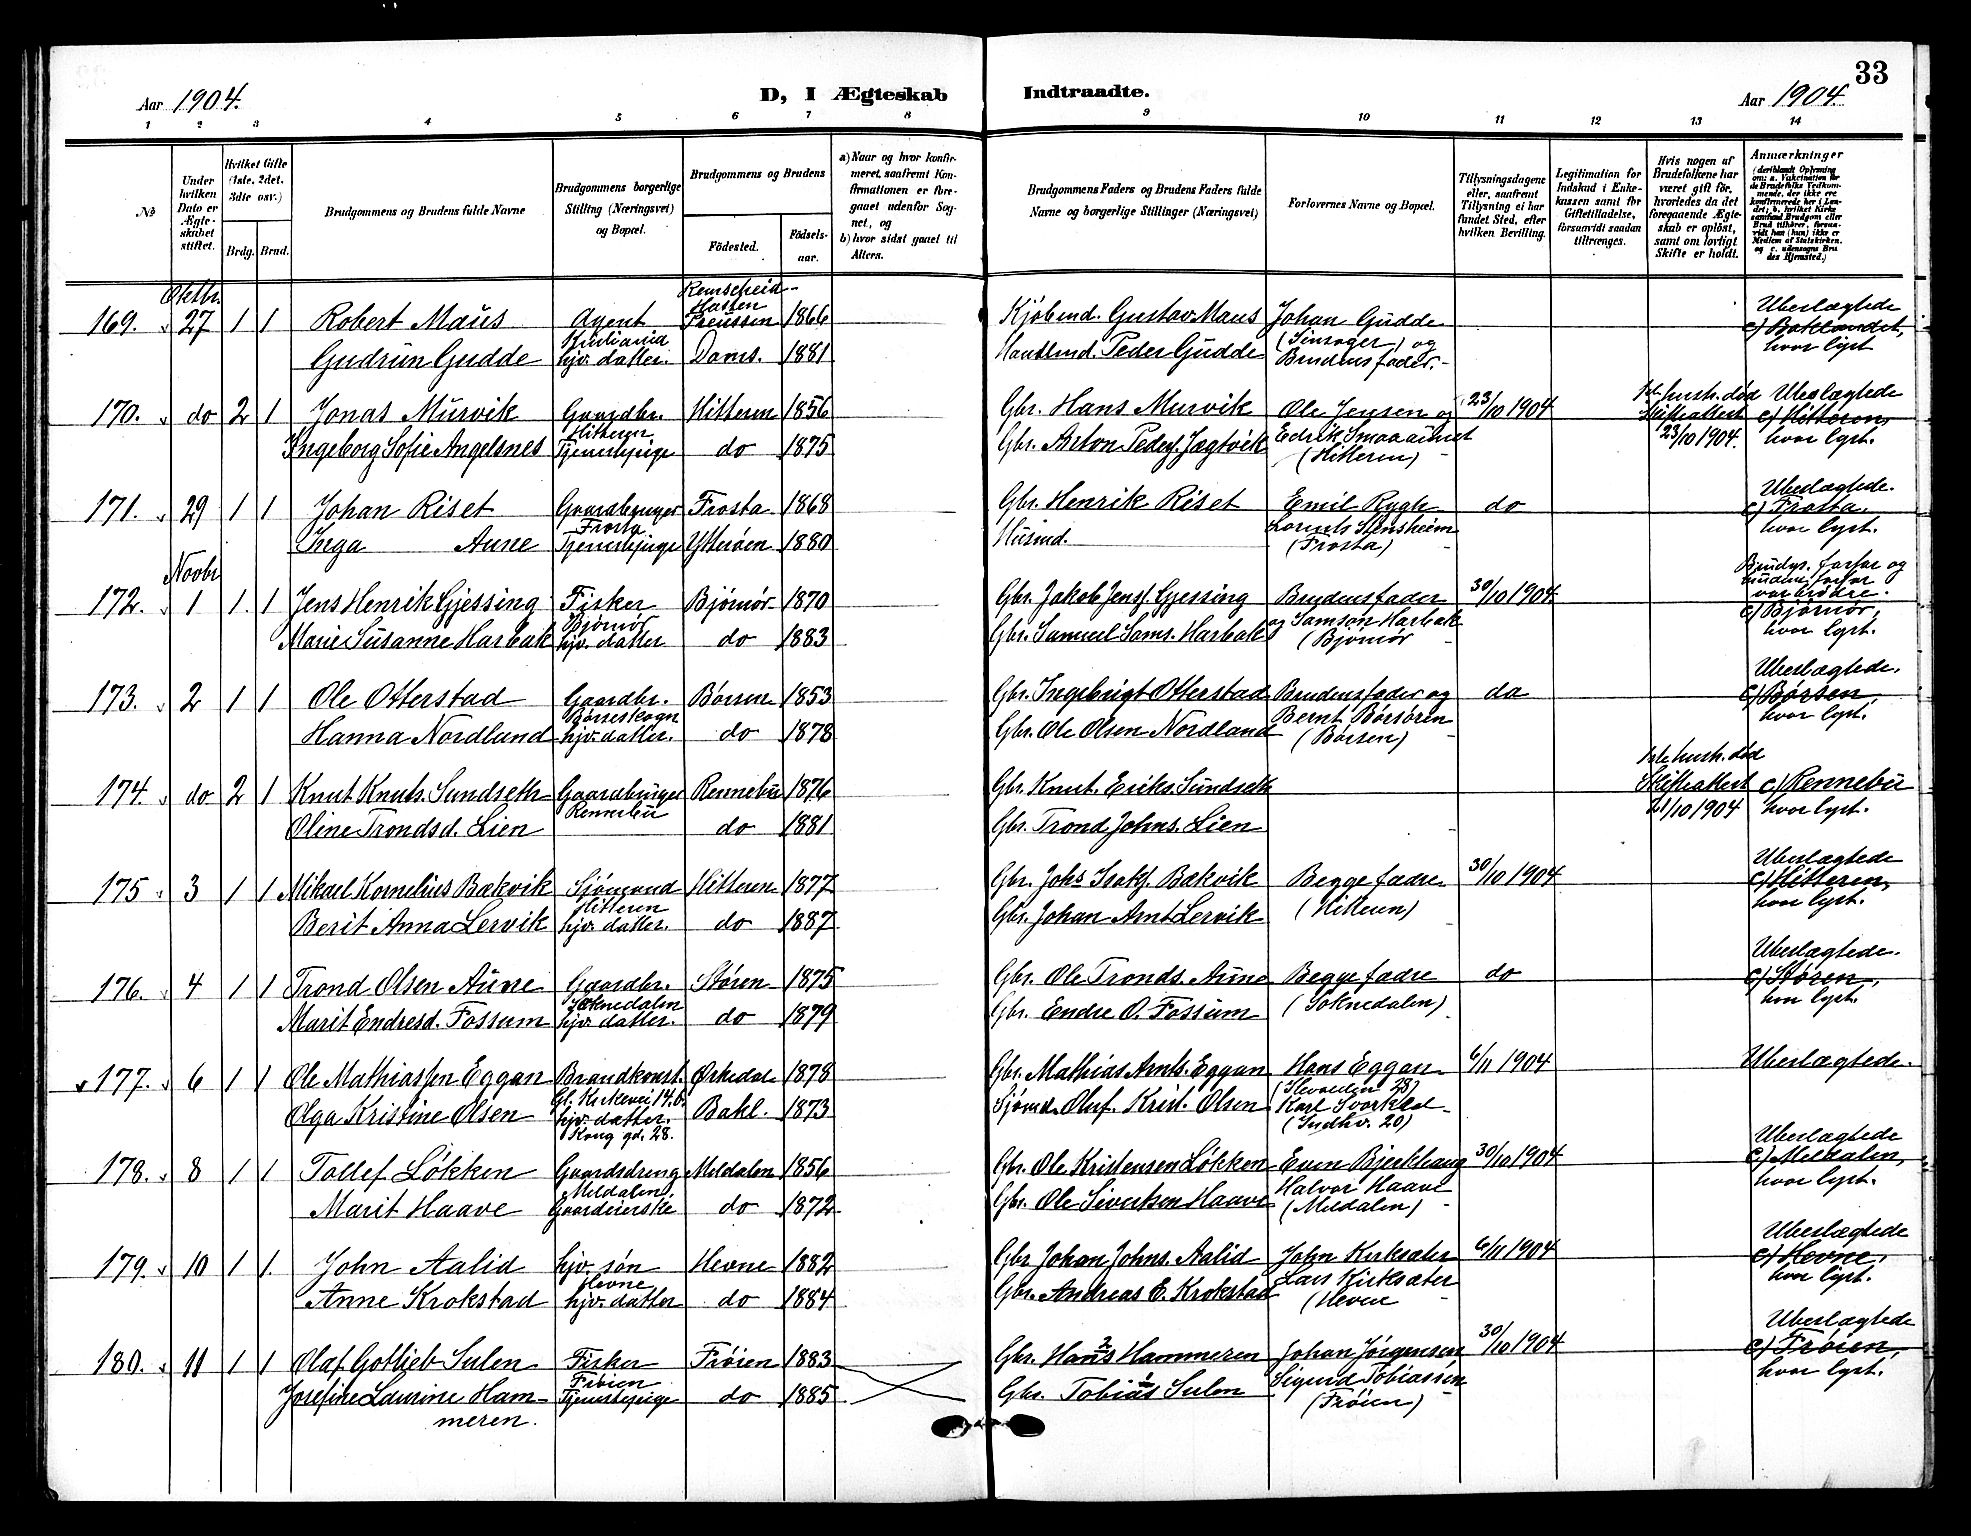 33
Aar 1904.
D, I Ægteskab Indtraadte.
Aar 1904.
1 2 3 4 5 6 7 8 9 10 11 12 13 14
No
Under hvilken Dato er Ægteskabet stiftet.
Hvilket Gifte (1ste, 2det, 3die osv.)
Brdg. Brud.
Brudgommens og Brudens fulde Navne
Brudgommens borgerlige Stilling (Næringsvei) og Bopæl.
Brudgommens og Brudens
Fødested. Fødselsaar.
a) Naar og hvor konfirmeret, saafremt Konfirmationen er foregaaet udenfor Sognet, og
b) hvor sidst gaaet til Alters.
Brudgommens Faders og Brudens Faders fulde Navne og borgerlige Stillinger (Næringsvei)
Forlovernes Navne og Bopæl.
Tillysningsdagene eller, saafremt Tillysning ei har fundet Sted, efter hvilken Bevilling.
Legitimation for Indskud i Enkekassen samt for Giftetilladelse, forsaavidt saadan tiltrænges.
Hvis nogen af Brudefolkene har været gift før, hvorledes da det foregaaende Ægteskab er opløst, samt om lovligt Skifte er holdt.
Anmærkninger
Oktbr.
169. 27 1 1 Robert Maus Agent Kristiania Remscheid Preussen 1866 Kjøbmd. Gustav Maus Johan Gudde Ubeslægtede c) Baklandet, hvor lyst
Gudrun Gudde hjv. datter. Doms. 1881 Peder Gudde og Brudens fader.
170. do 2 1 Jonas Murvik Gaardbr. Hitteren Hitteren 1856 Gbr. Hans Murvik Ole Jensen og 23/10 1904 1st. hustr. død Skifteattest 23/10 1904. Ubeslægtede c) Hitteren, hvor lyst.
Ingeborg Sofie Angelsnes Tjenestepige do 1875 Gbr. Anton Peders. Jægtvik (Hitteren)
171. 29 1 1 Johan Riset Gaardbruger Frosta Frosta 1868 Gbr. Henrik Riset Emil Rygh do Ubeslægtede. c) Frosta. hvor lyst.
Inga Aune Tjenestepige Ytterøen 1880 Husmd. (Frosta)
Novbr
172. 1 1. 1 Jens Henrik Gjessing Fisker Bjørnør Bjørnør 1870 Gbr. Jakob Jens. Gjessing Brudens fader 30/10 1904. Brudgs. farfar og brudens farfar var brødre. c) Bjørnør, hvor lyst.
Marie Susanne Harbak hjv. datter do 1883 Gbr. Samuel Sams. Harbak og Samson Harbak (Bjørnør
173. 2 1 1 Ole Otterstad Gaardbr. Børseskogn Børsen 1853 Gbr. Ingebrigt Otterstad Brudens fader og do Ubeslægtede. c) Børsen, hvor lyst.
Hanna Nordlund hjv. datter. do 1878 Gbr. Ole Olsen Nordland Bernt Børsøren (Børsen)
174. do 2 1 Knut Knuts. Sundseth Gaardbruger Rennebu Rennebu 1876 Gbr. Knut Eriks. Sundseth 1ste hustr. død Skifteattest 21/10 1904 c) Rennebu hvor lyst.
Oline Trondsd. Lien do 1881 Gbr. Trond Johns. Lien
175 3 1 1 Mikael Kornelius Bækvik Sjømand Hitteren Hitteren 1877 Gbr. Johs Isaks. Bækvik Begge fædre 30/10 1904 Ubeslægtede c) Hitteren, hvor lyst.
Berit Anna Lervik hjv. datter. do 1887 Gbr. Johan Arnt Lervik (Hitteren)
176. 4 1 1 Trond Olsen Aune Gaardbr. Soknedalen Støren 1875 Gbr. Ole Tronds. Aune Begge fædre do Ubeslægtede. c) Støren, hvor lyst.
Marit Endresd. Fossum hjv. datter. do 1879 Gbr. Endre O. Fossum (Soknedalen)
177. 6 1 1 Ole Mathiassen Eggan Brandkonst. Gl. Kirkevei 14.b. Ørkedal 1878 Gbr. Mathias Arnts. Eggan Hans Eggan 6/11 1904 Ubeslægtede.
Olga Kristine Olsen hjv. datter. Kong. gd. 28. Bakl. 1873 Sjømd. Oluf Krist. Olsen Karl Svorkled (Indhv. 20)
178. 8 1 1 Tollef Løkken Gaardsdreng Meldalen. Meldalen 1856 Gbr. Ole Kristensen Løkken Even Bjerkhaug 30/10 1904 Ubeslægtede c) Meldalen, hvor lyst.
Marit Haave Gaardeierske do 1872 Gbr. Ole Sivertsen Haave Halvor Haave (Meldalen)
179. 10 1 1. John Aalid hjv. søn Hevne Hevne 1882 Gbr. Johan Johns. Aalid John Kirksæter 6/11 1904 Ubeslægtede c) Hevne. hvor lyst.
Anne Krokstad hjv. datter do 1884 Gbr. Andreas E. Krokstad Lars Kirksæter (Heven
180. 11 1 1 Olaf Gotlieb Sulen Fisker Frøien Frøien 1883 Gbr. Hans Hammeren Johan Jørgensen 30/10 1904 Ubeslægtede c) Frøien, hvor lyst.
Josefine Laurine Hammeren. Tjenestepige do 1885 Gbr. Tobias Sulen Sigurd Tobiassen (Frøien)